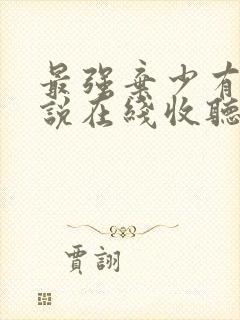 最強棄少有
說在綫收聽
賈詡